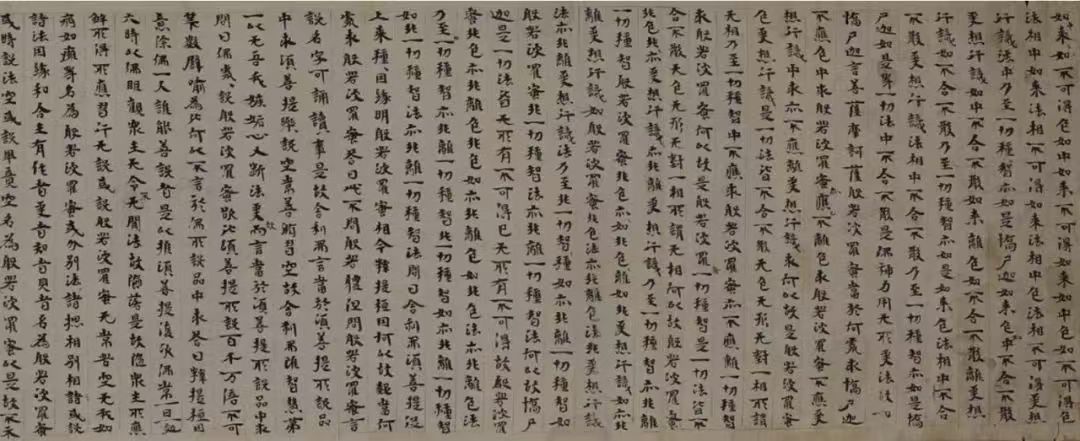 如來如不可得如來如中色如不可得色
法相中如來法相不可得如來法相中色法相不可得受想
行識法中乃至一切種智亦如是憍尸迦如來色如中不合不散
受想行識如中不合不散如來離色如不合不散離受想
行識如不合不散乃至一切種智亦如是如來色法相中不合
不散受想行識法相中不合不散乃至一切種智亦如是憍
尸迦如是等一切法中不合不散是佛神力用无所受法故如
憍尸迦言菩薩摩訶薩般若波羅蜜當於何處求憍尸迦
不應色中求般若波羅蜜亦應不離色求般若波羅蜜不應受
想行識中求亦不應離受想行識求何以故是般若波羅蜜
色受想行識是一切法皆不合不散无色无形无對一相所謂
无相乃至一切種智中不應求般若波羅蜜亦不應離一切種智
求般若波羅蜜何以故是般若波羅蜜一切種智是一切法皆不
合不散无色无形无對一相所謂无相何以故般若波羅蜜非
色亦非離色非受想行識亦非離受想行識乃至非一切種智亦非離
一切種智般若波羅蜜非色如亦非離色如非受想行識如亦非
離受想行識如般若波羅蜜非色法亦非離色法非受想行識
法亦非離受想行識法乃至非一切種智如亦非離一切種智如
般若波羅蜜非一切種智法亦非離一切種智法何以故憍尸
迦是一切法皆无所有不可得以无所有不可得故般若波羅
蜜非色亦非離色非色如亦非離色如非色法亦非離色法
乃至非一切種智亦非離一切種智非一切種智如亦非離一切種智
如非一切種智法亦非離一切種智法問曰舍利弗須菩提從
上來種種因緣明般若波羅蜜相今釋提桓因何以故說當何
處求般若波羅蜜答曰此不問般若體但問般若波羅蜜言
說名字可誦讀事是故舍利弗言當於須菩提所說品
中求須菩提樂說空常善修習空故舍利弗雖智慧第
一以无吾我嫉妬心又斷法愛故而言當於須菩提所說品中求
問曰佛處處說般若波羅蜜欲比須菩提所說百千万倍不可
算數譬喻為比何以不言於佛所說品中求答曰釋提桓因
意除佛一人誰能善說者是以推須菩提復次佛常一日一夜
六時以佛眼觀眾生无令不聞法故墮落是故隨眾生所應
解所得所應習行无說或說般若波羅蜜无常苦空无我如
病如癰等名為般若波羅蜜或分別法諸捴相別相諸或說
諸法因緣和合生有作者受者知者見者名為般若波羅蜜
或時說法空或說畢竟空名為般若波羅蜜以是故不